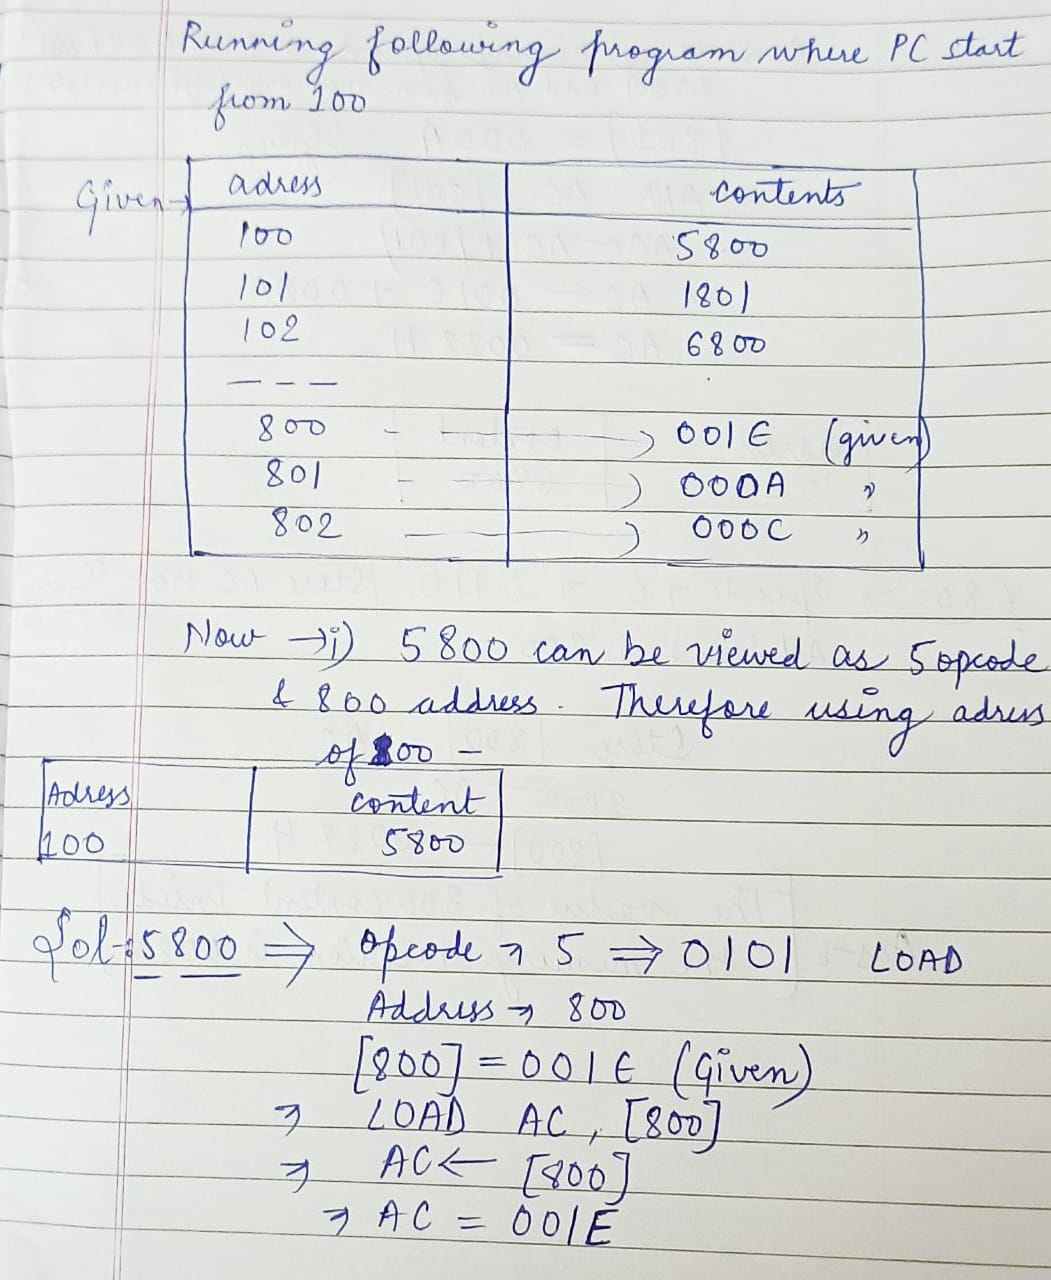 Running following program where PC start
from 100
Given → adress contents
100 5800
101 1801
102 6800
- - -
800 - - → 001E (given)
801 → 000A "
802 → 000C "
Now → i) 5800 can be viewed as 5 opcode
& 800 address. Therefore using adress
of 800 -
Adress content
100 5800
Sol-: 5800 ⇒ Opcode → 5 ⇒ 0101 LOAD
Address → 800
[800] = 001E (Given)
⇒ LOAD AC, [800]
⇒ AC ← [800]
⇒ AC = 001E